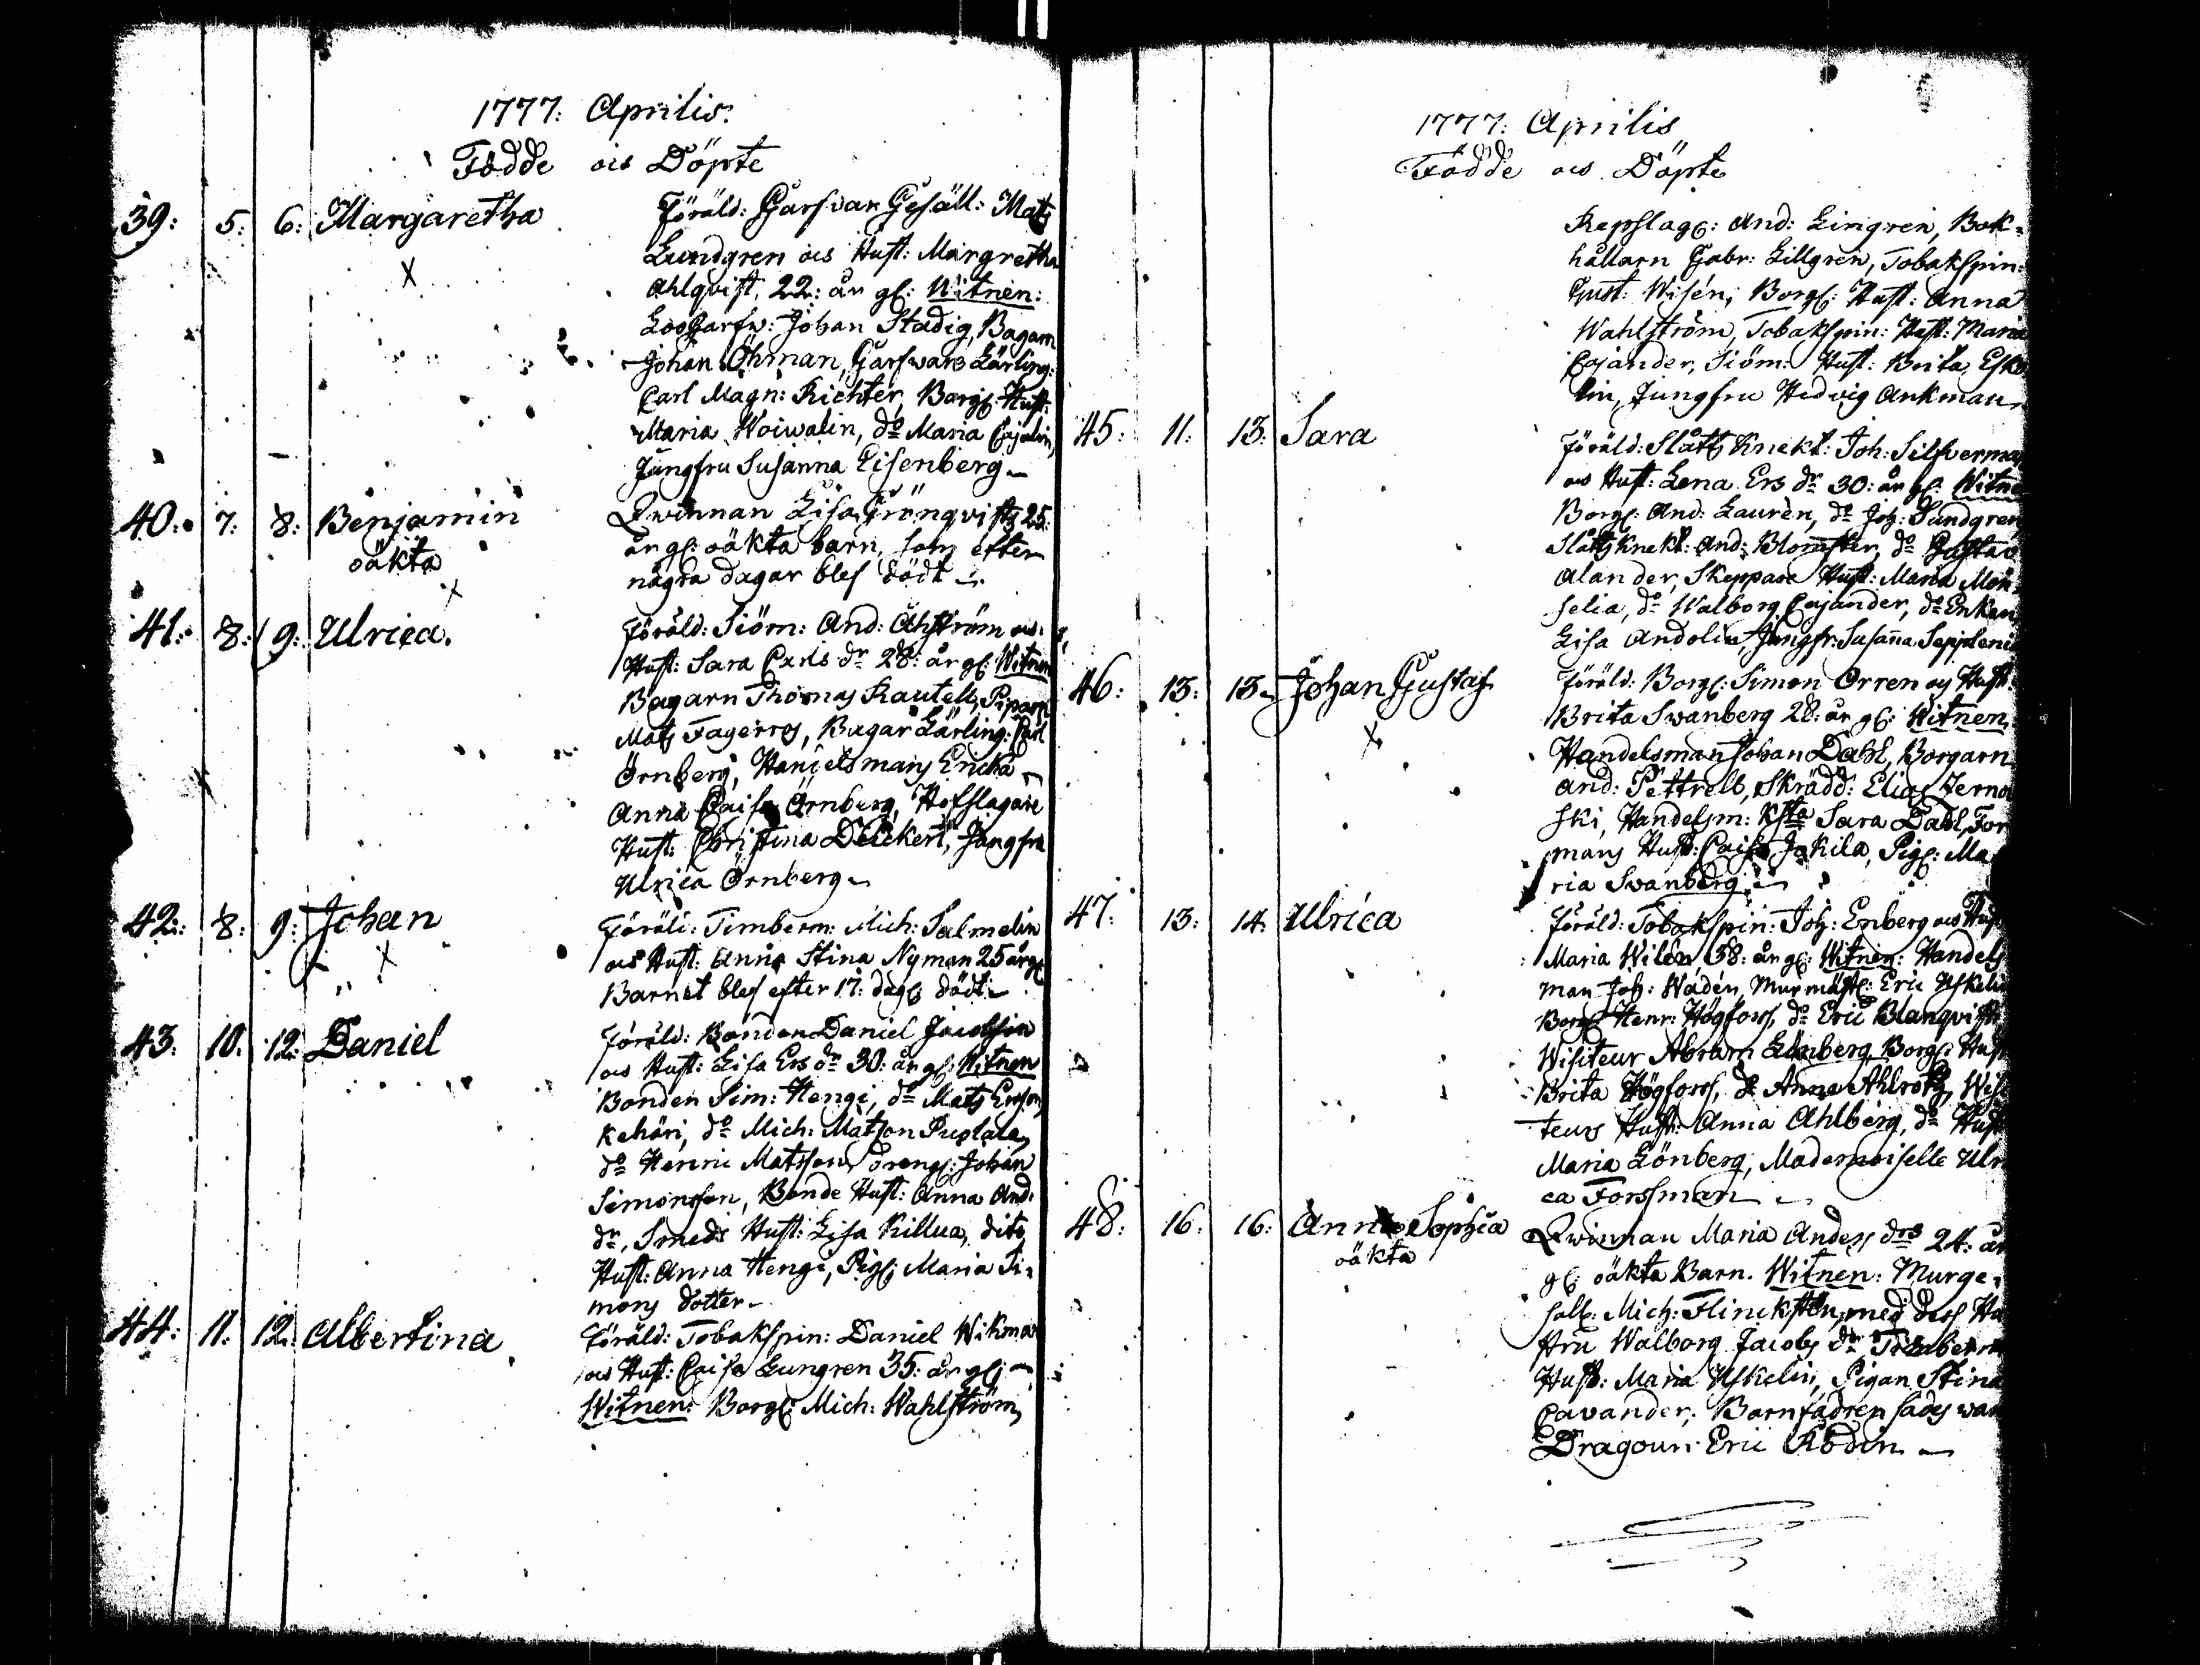 1777: Aprilis.
Födde och Döpte
39: 5: 6: Margaretha Föräld: Garfvar Gesäll: Mats
Lundgren och Hust: Margretha
Ahlqvist, 22: år gl: Witnen:
Loogarfw: Johan Stadig, Bagarn
Johan Öhman, Garfwar Lärling:
Carl Magn: Richter, Borg: Hust:
Maria Woiwalin, do Maria Cajalin,
Jungfru Susanna Eisenberg
40: 7: 8: Benjamin Qwinnan Lisa Grönqvists 25:
oäkta år gl: oäkta barn, som efter
några dagar blef dödt
41: 8: 9: Ulrica. Föräld: Siöm: And: Åhström och
Hust: Sara Carls dr 28: år gl: Witnen
Bagarn Thomas Rautell, Piparn
Mats Fagerros, Bagar Lärling: Carl
Örnberg, Handelsmans Enka
Anna Caisa Örnberg, Hofslagare
Hust: Christina Deickert, Jungfru
Ulrica Örnberg
42: 8: 9: Johan Föräld: Timberm: Mich: Salmelin
och Hust: Anna Stina Nyman 25 år gl
Barnet blef efter 17: dag: dödt
43: 10: 12: Daniel Föräld: Bonden Daniel Jacobsson
och Hust: Lisa Ers dr 30: år gl: Witnen
Bonden Sim: Hengi, do Mats Ersson
Kehäri, do Mich: Matsson Puolala,
do Henric Matsson dreng: Johan
Simonsson, Bonde Hust: Anna And:
dr, Smeds Hust: Lisa Killua, dito
Hust: Anna Hengi, Pig: Maria Si-
mons dotter
44: 11: 12: Albertina Föräld: Tobakspin: Daniel Wikman
och Hust: Caisa Lungren 35: år gl:
Witnen: Borg: Mich: Wahlström,
1777: Aprilis
Födde och Döpte
Repslag: And: Lingren, Bok-
hållarn Gabr: Lillgren, Tobakspin:
Gust: Wisén, Borg: Hust: Anna
Wahlström, Tobakspin: Hust: Maria
Cajander, Siöm: Hust: Brita Esko
lin, Jungfru Hedvig Ankman
45: 11: 13: Sara Föräld: Slåtts Knekt: Joh: Silfverma
och Hust: Lena Ers dr 30: år gl: Witne
Borg: And: Laurén, do Joh: Sundgren
Slåttsknekt: And: Blomster, do Gustav
Alander, Skeppare Hust: Maria Mon
selia, do Walborg Cajander, do Enkan
Lisa Andolin, Jungfr: Susanna Seppleni
46: 13: 13. Johan Gustaf Föräld: Borg: Simon Orren och Hust:
Brita Swanberg 28: år gl: Witnen,
Handelsman Johan Dahl, Borgarn
And: Pettrell, Skrädd: Elias Jerno
ski, Handelsm: Ksta Sara Dahl, For
mans Hust: Caisa Jokila, Pig: Ma
ria Swanberg
47: 13: 14: Ulrica Föräld: Tobakspin: Joh: Enberg och Hust
Maria Wilén 38: år gl: Witnen: Handels
man Joh: Wadén, Murmäst: Eric Uskelin
Borg: Henr: Högfors, do Eric Blanqvist
Wisiteur Abram Lönberg, Borg: Hust
Brita Högfors, do Anna Ahlroth, Wisi
teurs Hust: Anna Ahlberg, do Hust
Maria Lönberg, Mademoiselle Ulri
ca Forssman
48: 16: 16: Anna Sophia Qwinnan Maria Anders drs 24: år
oäkta gl: oäkta Barn. Witnen: Murge-
säll: Mich: Flincksten, med dess Hu
stru Walborg Jacobs dr Timberm
Hust: Maria Uskelin, Pigan Stina
Cavander; Barnfadren sades war
Dragoun Eric Robin